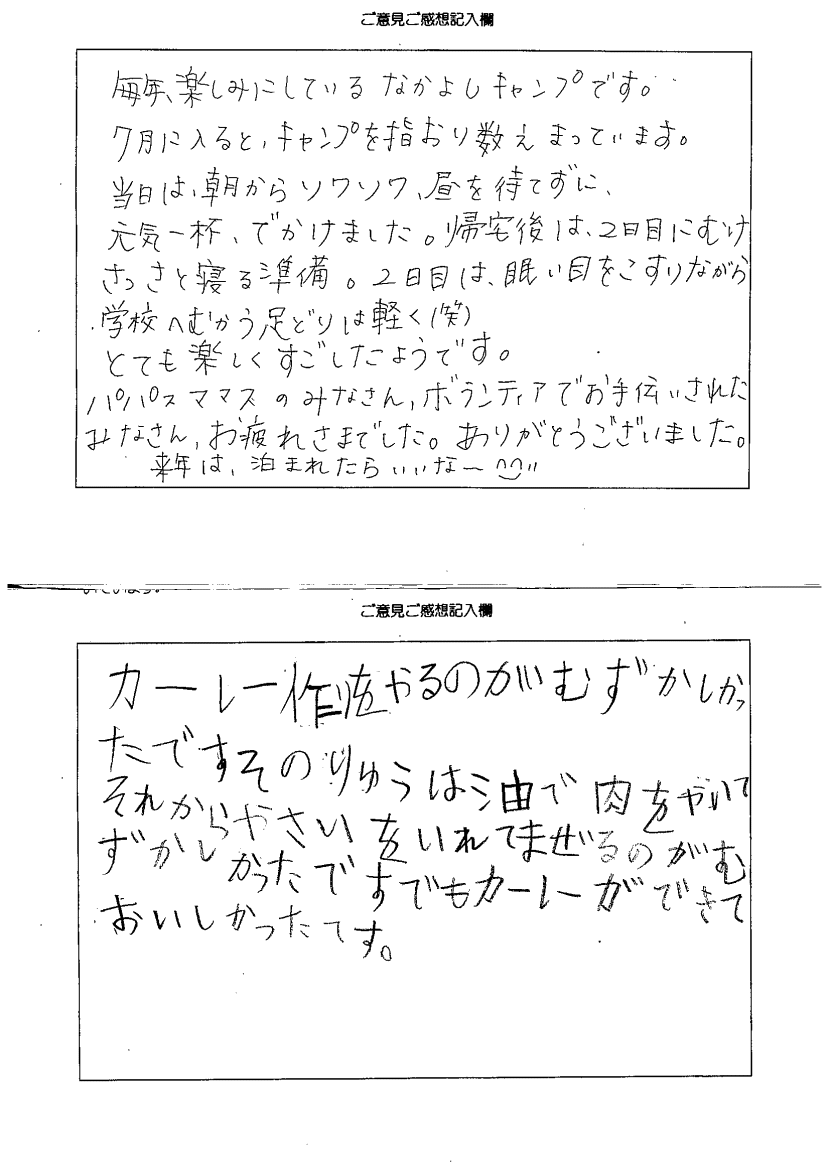 ご意見ご感想記入欄
毎年、楽しみにしている なかよしキャンプです。
7月に入ると、キャンプを指おり数え まっています。
当日は、朝から ソワソワ、昼を待てずに、
元気一杯、でかけました。帰宅後は、2日目にむけ
さっさと寝る準備。2日目は、眠い目をこすりながら
学校へむかう足どりは軽く(笑)
とても楽しくすごしたようです。
パパスママスのみなさん、ボランティアでお手伝いされた
みなさん、お疲れさまでした。ありがとうございました。
来年は、泊まれたらいいな〜
ご意見ご感想記入欄
カーレー作をやるのがむずかしかっ
たですそのりゅうは油で肉をやいて
それからやさいをいれてまぜるのがむ
ずかしかったですでもカーレーができて
おいしかったてす。